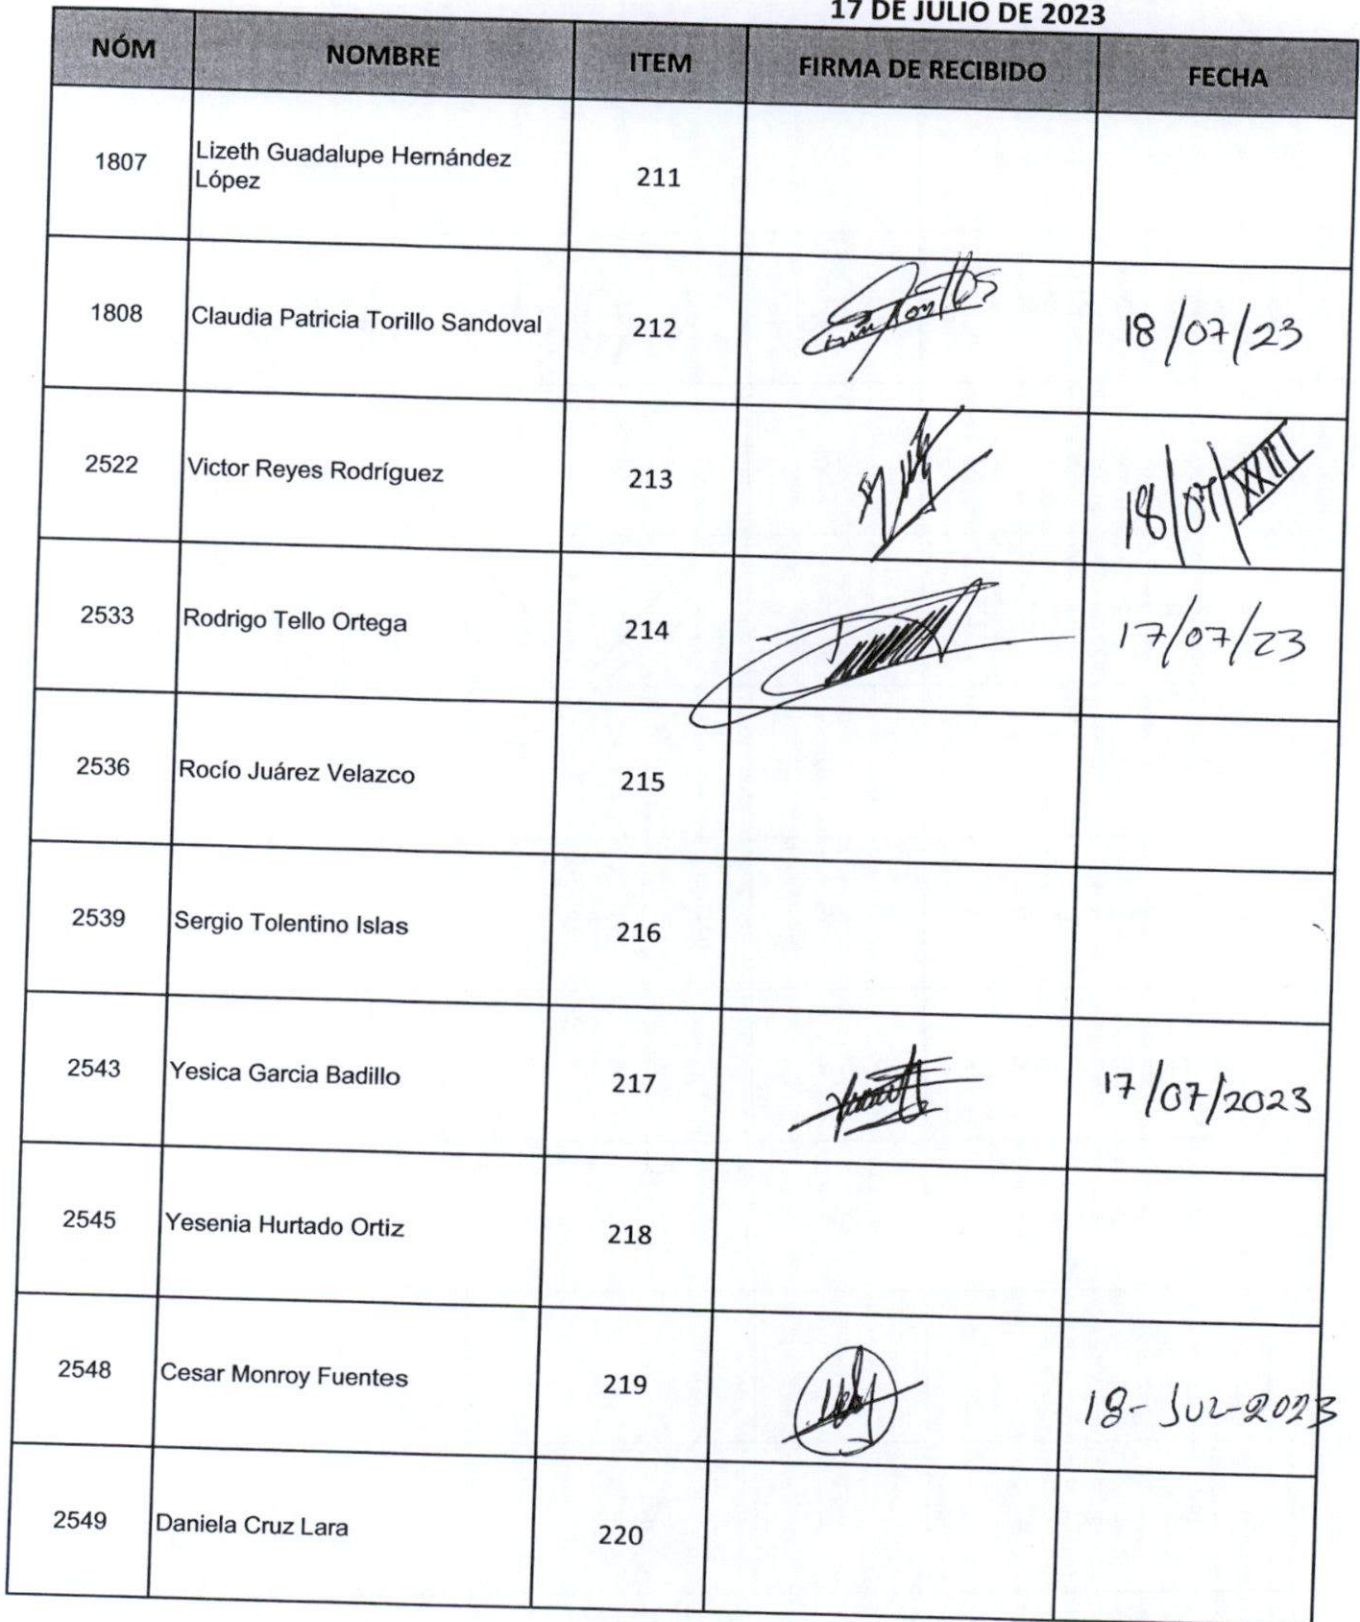 17 DE JULIO DE 2023
NÓM NOMBRE ITEM FIRMA DE RECIBIDO FECHA
1807 Lizeth Guadalupe Hernández López 211
1808 Claudia Patricia Torillo Sandoval 212 18/07/23
2522 Victor Reyes Rodríguez 213 18/07/XXIII
2533 Rodrigo Tello Ortega 214 17/07/23
2536 Rocío Juárez Velazco 215
2539 Sergio Tolentino Islas 216
2543 Yesica Garcia Badillo 217 17/07/2023
2545 Yesenia Hurtado Ortiz 218
2548 Cesar Monroy Fuentes 219 18-JUL-2023
2549 Daniela Cruz Lara 220